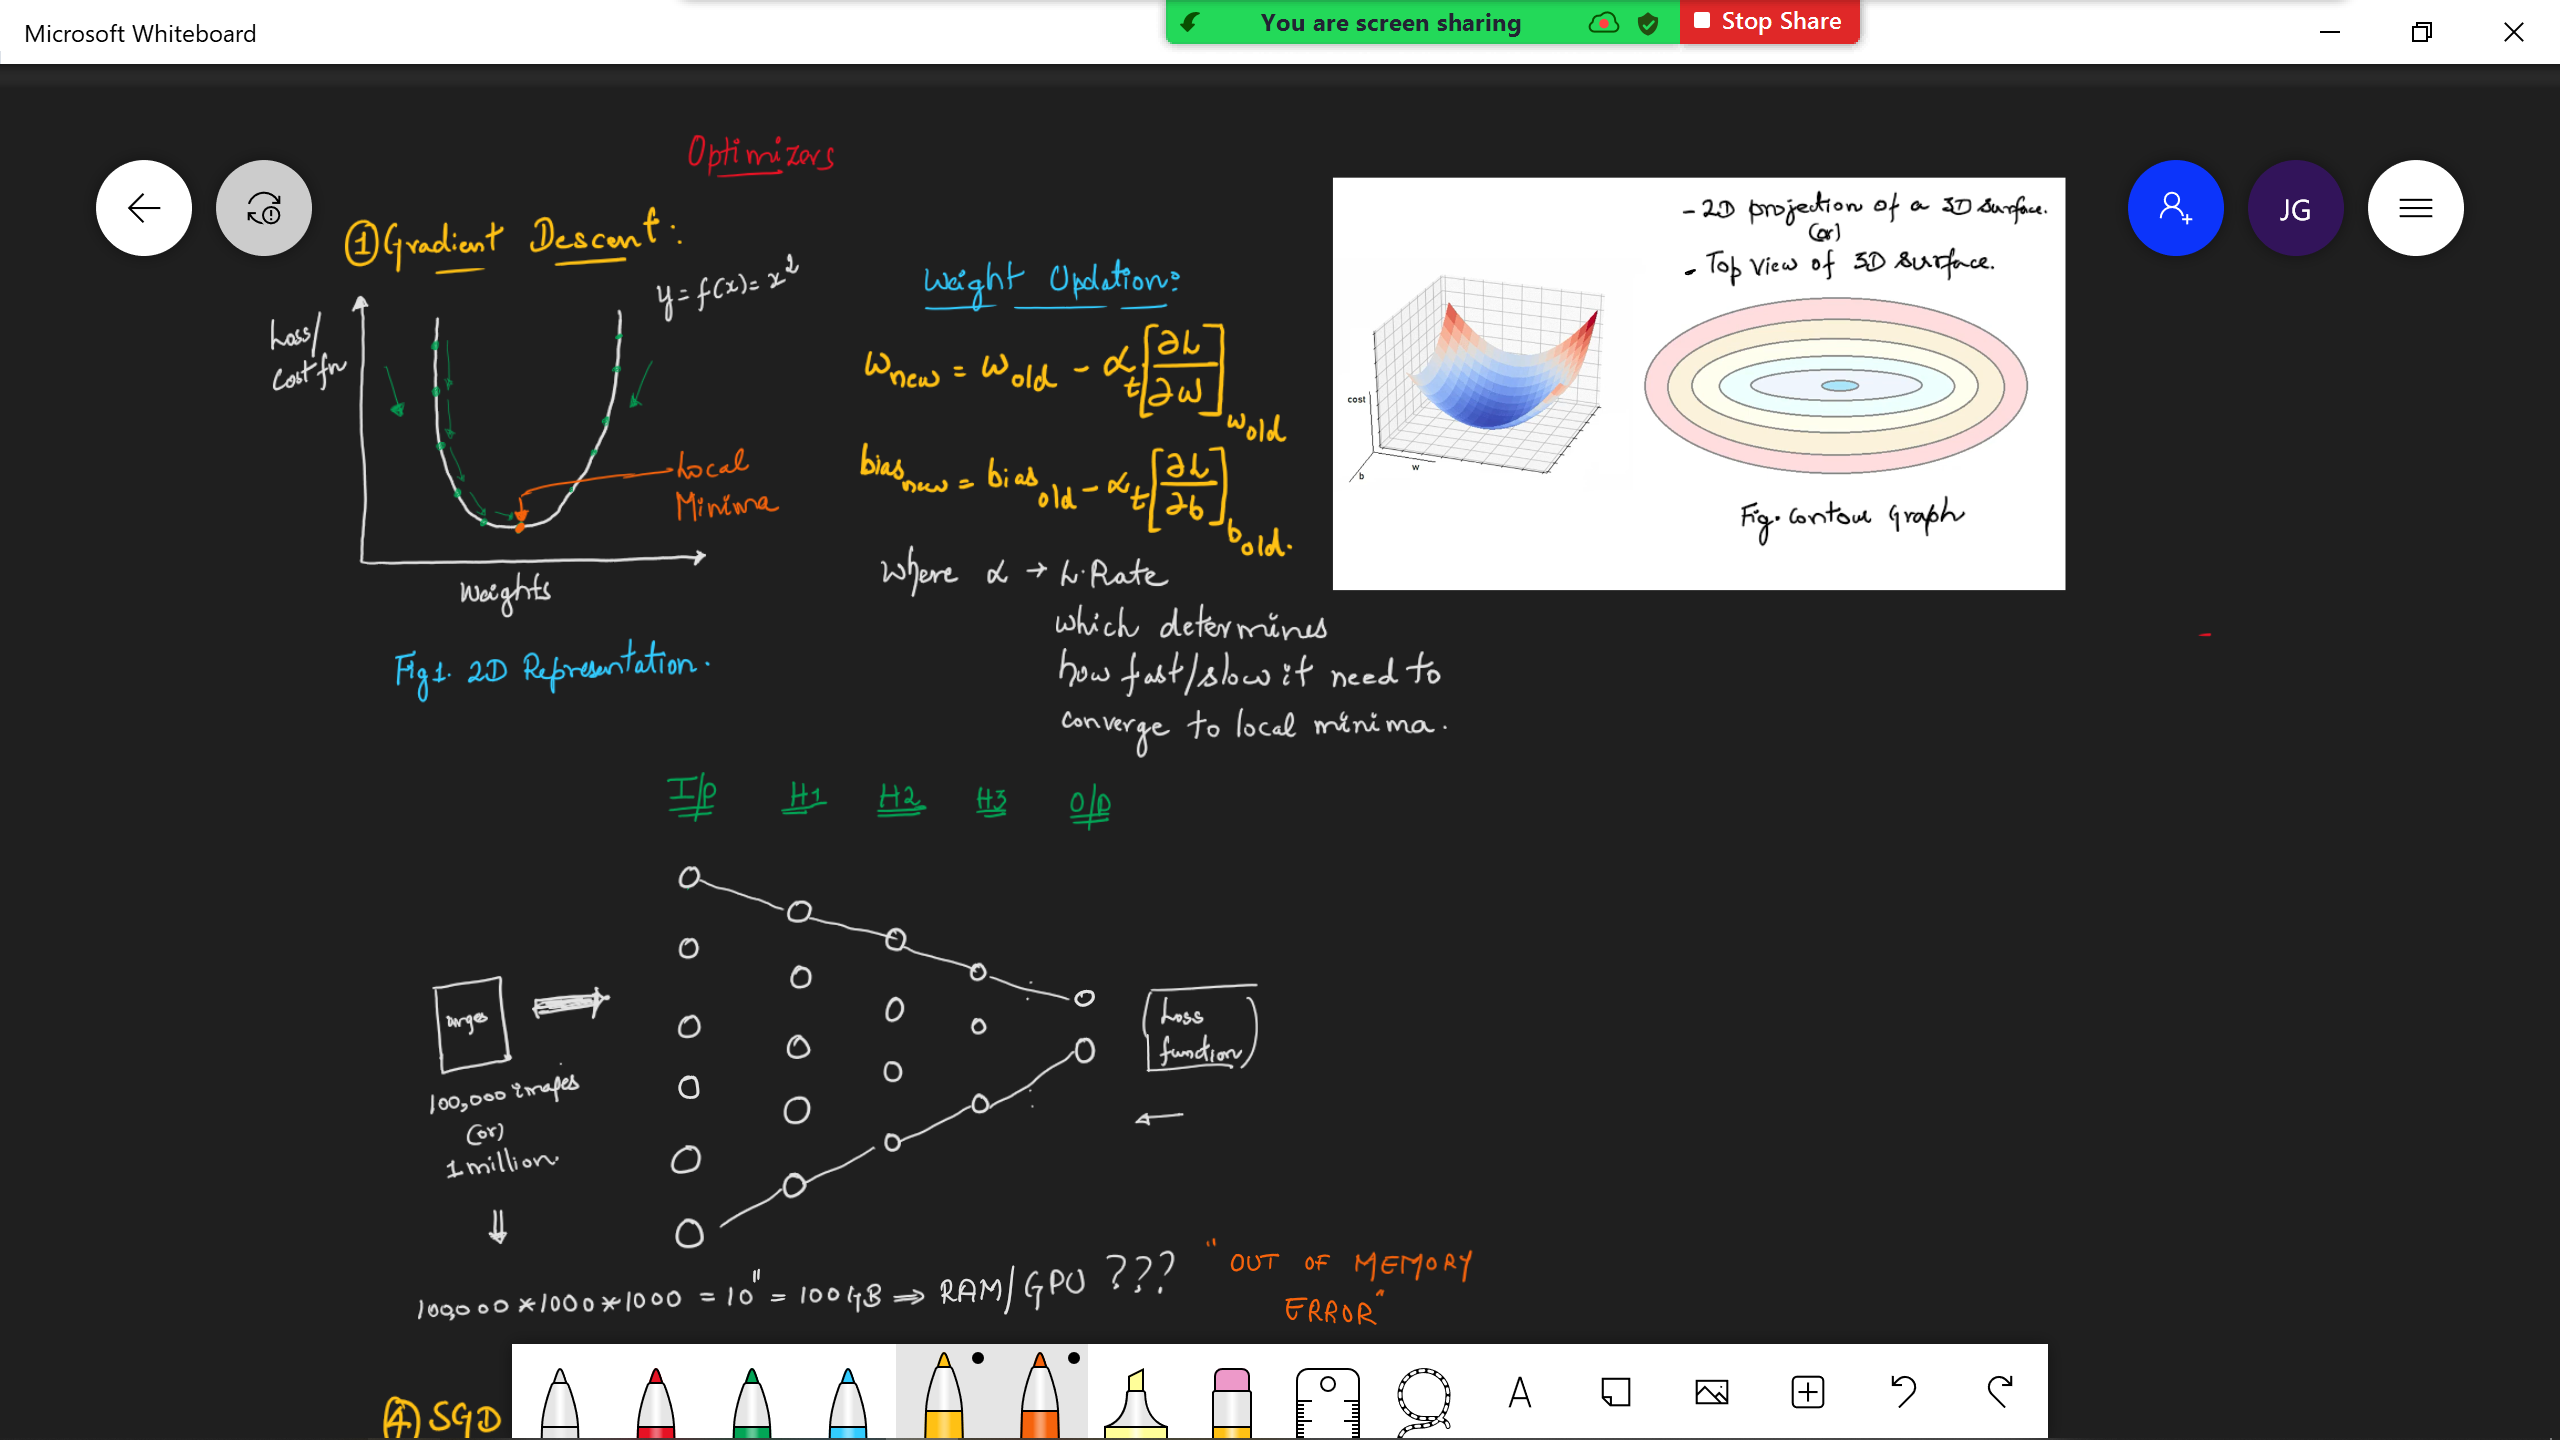 Microsoft Whiteboard
You are screen sharing
Stop Share
JG
Optimizers
① Gradient Descent:
y = f(x) = x²
Loss/
Cost fn
Local
Minima
Weights
Fig 1. 2D Representation.
Weight Updation:
w new = w old - α t [∂L/∂w] w old
bias new = bias old - α t [∂L/∂b] b old.
where α → L.Rate
which determines
how fast/slow it need to
converge to local minima.
- 2D projection of a 3D surface.
(or)
- Top view of 3D surface.
cost
w
b
Fig. Contour Graph
I/P H1 H2 H3 O/P
Loss
function
100,000 images
(or)
1 million.
100,000 * 1000 * 1000 = 10¹¹ = 100 GB ⇒ RAM/GPU ???
"OUT OF MEMORY
ERROR"
SGD